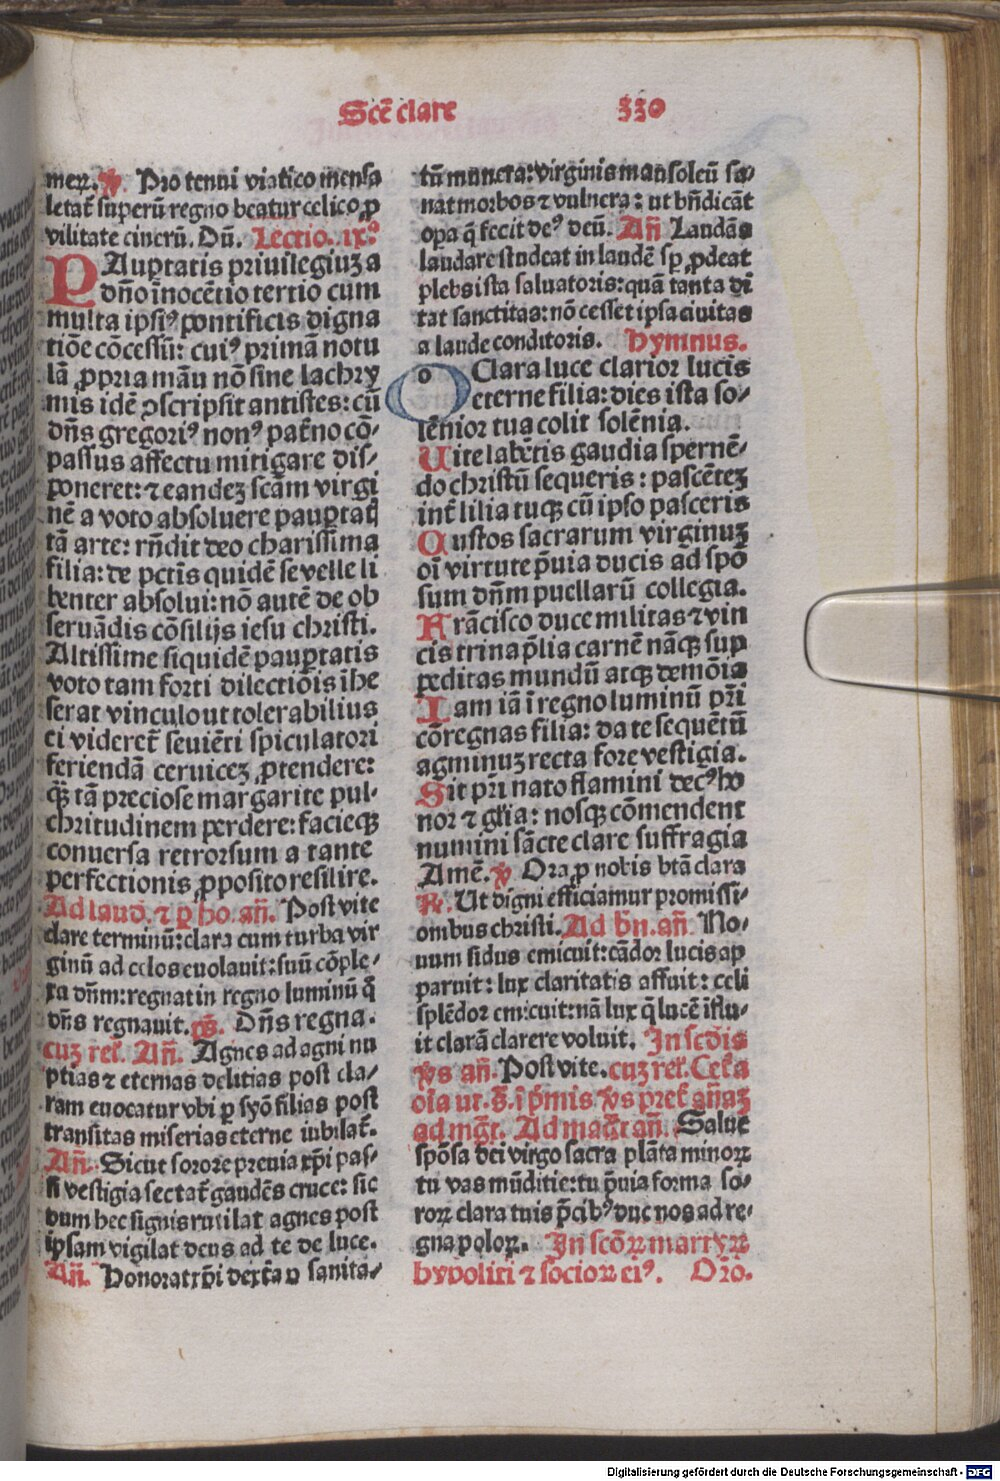 Scē clare 330
meꝝ. ℣. Pro tenui viatico mensa
letat᷑ superū regno beatur celico ꝓ
vilitate cinerū. Dn̄. Lectio. ix.ᵃ
PAuꝑtatis priuilegiuꝫ a
dn̄o inocētio tertio cum
multa ipsiꝰ pontificis digna
tiōe cōcessū: cuiꝰ primā notu
lā ꝓpria māu nō sine lachry
mis idē ꝯscripsit antistes: cū
dn̄s gregoriꝰ nonꝰ pat̄no cō-
passus affectu mitigare dis-
poneret: ⁊ eandeꝫ scām virgi
nē a voto absoluere pauꝑtatꝭ
tā arte: rn̄dit deo charissima
filia: de pctīs quidē se velle li
benter absolui: nō autē de ob
seruādis cōsilijs iesu christi.
Altissime siquidē pauꝑtatis
voto tam forti dilectiōis ihe
serat vinculo ut tolerabilius
ei videret᷑ seuiēti spiculatori
feriendā ceruiceꝫ ꝓtendere:
ꝙ̄ tā preciose margarite pul-
chritudinem perdere: facieqꝫ
conuersa retrorsum a tante
perfectionis ꝓposito resilire.
Ad laud. ⁊ ꝑ ho. an̄. Post vite
clare terminū: clara cum turba vir
ginū ad celos euolauit: suū cōple-
xa dn̄m: regnat in regno luminū q̄
dn̄s regnauit. p̄s. Dn̄s regna.
cuꝫ rel᷑. An̄. Agnes ad agni nu
ptias ⁊ eternas delitias post cla-
ram euocatur vbi ꝑ syō filias post
transitas miserias eterne iubilat᷑.
An̄. Sicut sorore preuia xp̄i pas-
si vestigia sectat᷑ gaudēs cruce: sic
dum hec signis rutilat agnes post
ipsam vigilat deus ad te de luce.
An̄. Honorat xp̄i dext̄a ꝓ sanita-
tū munera: virginis mausoleū sa-
nat morbos ⁊ vulnera: ut bn̄dicāt
oꝑa q̄ fecit deꝰ deū. An̄ Laudās
laudare studeat in laudē sꝑ ꝓdeat
plebs ista saluatoris: quā tanta di
tat sanctitas: nō cesset ipsa ciuitas
a laude conditoris. Hymnus.
O Clara luce clarior lucis
eterne filia: dies ista so-
lēnior tua colit solēnia.
Uite labētis gaudia spernē-
do christū sequeris: pascēteꝫ
int᷑ lilia tuqꝫ cū ipso pasceris
Custos sacrarum virginuꝫ
oī virtute p̄uia ducis ad spō
sum dn̄m puellarū collegia.
Frācisco duce militas ⁊ vin
cis trina p̄lia carnē nāqꝫ sup
peditas mundū atqꝫ demōia
Iam iā ī regno luminū p̄ri
cōregnas filia: da te sequētū
agminuꝫ recta fore vestigia.
Sit p̄ri nato flamini decꝰ ho
nor ⁊ gl̄ia: nosqꝫ cōmendent
numini sācte clare suffragia
Amē. ℣. Ora ꝓ nobis btā clara
℟. Ut digni efficiamur promissi-
onibus christi. Ad bn̄. an̄. No-
uum sidus emicuit: cādor lucis ap
paruit: lux claritatis affuit: celi
splēdor emicuit: nā lux q̄ lucē īflu-
it clarā clarere voluit. In scdis
v̄s an̄. Post vite. cuꝫ rel᷑. Cet̄a
oīa ut. s̄. ī p̄mis v̄s pret᷑ an̄aꝫ
ad mḡt. Ad maḡt an̄. Salue
spōsa dei virgo sacra plāta minoꝝ
tu vas mūditie: tu p̄uia forma so-
roꝝ clara tuis p̄cibꝰ duc nos ad re-
gna poloꝝ. In scōꝝ martyꝝ
hypoliti ⁊ socioꝝ eiꝰ. Oro.
Digitalisierung gefördert durch die Deutsche Forschungsgemeinschaft - DFG